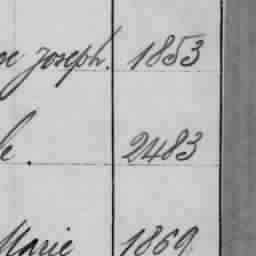 Joseph. 1853
2483
Marie 1869